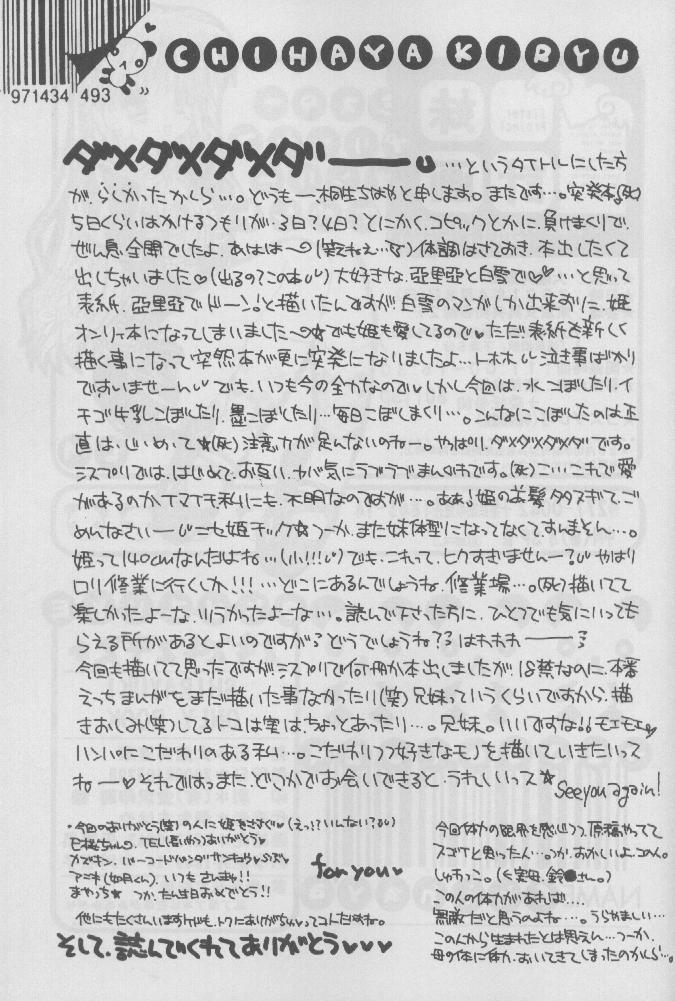 971434 493
CHIHAYA KIRYU
ダメダメダメダーーー。…というタイトルにした方
が、らしかったかしら…。どうも一、桐生ちはやと申します。またです…。突発本(死)
5日くらいはかけるつもりが、3日?4日?とにかく、コピックとかに、負けまくりで、
ぜん息、全開でしたよ、あはは〜(笑えねぇ…死)体調はさておき、本出したくて
出しちゃいました♡(出るの?この本)大好きな、亞里亞と白雪で♡♡…と思って
表紙、亞里亞でドーン!と描いたんですが、白雪のマンガしか出来ずに、姫
オンリー本になってしまいました〜☆でも姫も愛してるので♥ただ表紙を新しく
描く事になって突然本が更に突発になりましたよ…トホホ泣き事ばかり
ですいませーんでも、いつも今の全力なので♥しかし今回は、水こぼしたり、イ
チゴ牛乳こぼしたり、墨こぼしたり…毎日こぼしまくり…。こんなにこぼしたのは正
直は、じめて☆(死)注意力が足んないのねー。やっぱり、ダメダメダメダです。
シスプリでは、はじめて、お互い、ヤバ気にラブラブまんがです。(死)こ…これで愛
があるのか、イマイチ、私にも、不明なのですが…。ああ!姫のお髪タタスギて、ご
めんなさいーニセ姫チック☆つーか、また妹体型になってなくてすいません…。
姫って140cmなんだよね…(小!!!)でも、これって、ヒクすぎいませんー?やはり
ロリ修業に行くしか!!!…どこにあるんでしょうね、修業場…。(死)描いてて
楽しかったよーな、ツラかったよーな…。読んで下さった方に、ひとつでも気にいっても
らえる所があるとよいのですが?どうでしょうね??はれれれーー
今回も描いてて思ったですが、シスプリで何冊か本出しましたが、18禁なのに、本番
えっちまんがをまだ描いた事なかったり(笑)兄妹っていうくらいですから、描
きおしみ(笑)してるトコは実は、ちょっとあったり…。兄妹。いいですな!!モエモエ♥
ハンパにこだわりのある私…。こだわりつつ好きなモノを描いていきたいっス
ねー♥それではっまた、どこかでお会いできると、うれしいっス☆
See you again!
・今回のありがとう(笑)の人に姫をきすぐ♥(えっ!?いんない?)
TEL(長いやつ)ありがとう♥
カズキン、バーコードハンダーサンキウ
アニキ(如月くん)、いつもさんきゅ!!
まやっち★ つか、たん生日おめでとう!!
他にもたくさんいますけども、トクにありがちゅーってコトだすわね。
for you♥
そして、読んでくれてありがとう♥♥♥
今回体力の限界を感じつつ、原稿やってて
スゴイと思った人…つか、おかしいよ、コの人。
しゅわっこ。(※実母、鈴●さん。)
この人の体力があれば…。
無敵だと思うのよね…。うらやましい…
この人から生まれたとは思えん…つーか、
母の体に体力、おいてきてしまったのかしら…。